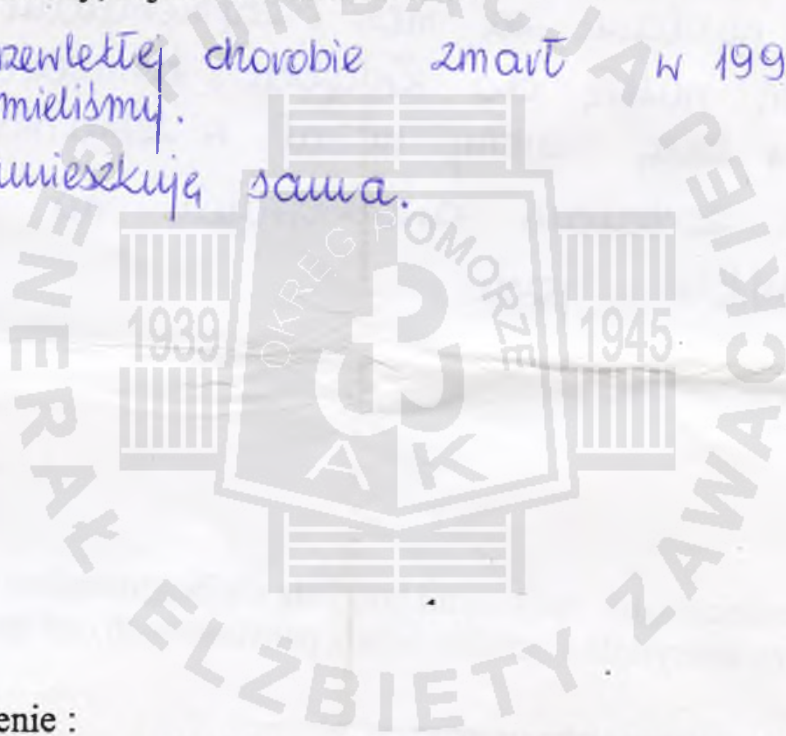 rzewlekłej chorobie zmarł w 199
mieliśmy.
mieszkuję sama.
FUNDACJA GENERAŁ ELŻBIETY ZAWACKIEJ
OKRĘG POMORZE
1939 1945
A K
enie :